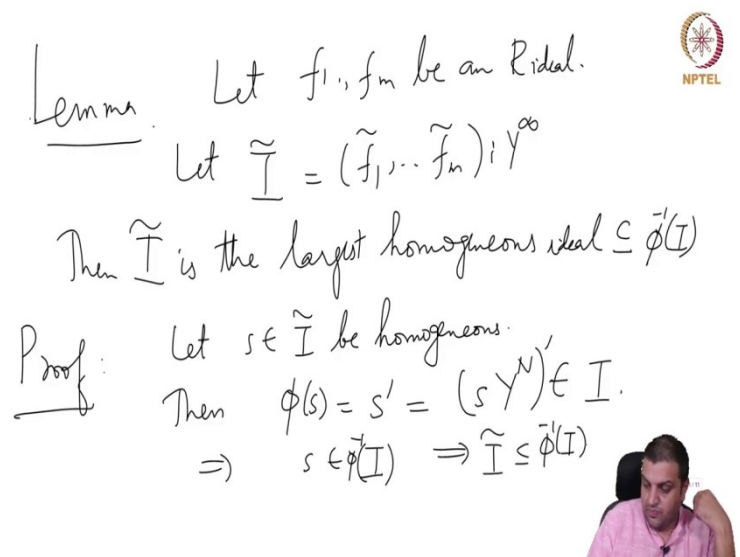 Lemma. Let f1.., fm be an R ideal.
NPTEL
Let Ĩ = (f̃1, .. f̃m) : Y^∞
Then Ĩ is the largest homogneons ideal ⊆ φ⁻¹(I)
Proof: Let s ∈ Ĩ be homogeneons.
Then φ(s) = s' = (s Y^N)' ∈ I.
⇒ s ∈ φ⁻¹(I) ⇒ Ĩ ⊆ φ⁻¹(I)